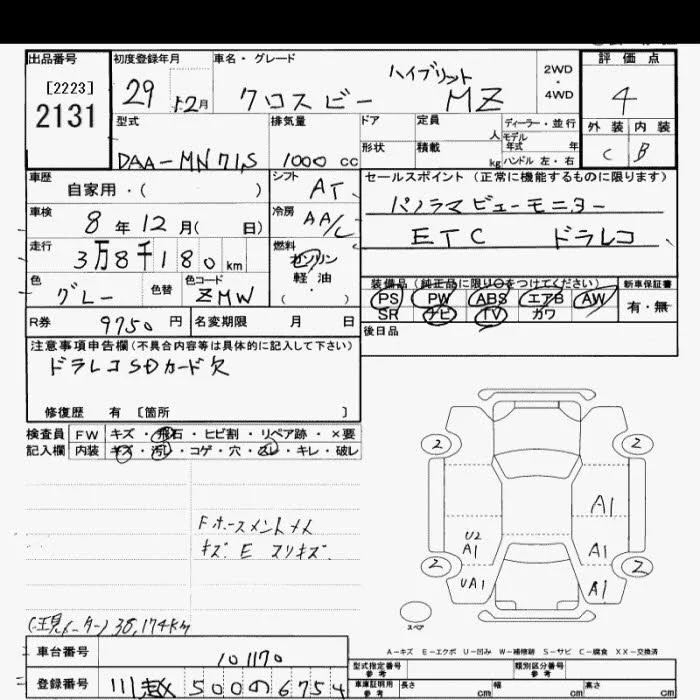 出品番号
[2223]
2131
初度登録年月
29 12月
車名・グレード
ハイブリット
クロスビー MZ
2WD
・
4WD
評価点
4
外装 内装
C B
型式
DAA-MN71S
排気量
1000 cc
ドア
形状
定員
人
積載
kg
ディーラー・並行
モデル
年式 年
ハンドル 左・右
車歴
自家用・( )
シフト
AT
車検
8年12月( 日)
冷房
AA/C
走行
3万8千180km
燃料
ガソリン
軽油
( ・ )
色
グレー
色替
色コード
ZMW
R券
9750円
名変期限 月 日
セールスポイント (正常に機能するものに限ります)
パノラマビューモニター
ETC ドラレコ
装備品 (純正品に限り○をつけてください)
PS PW ABS エアB AW
SR ナビ TV カワ
新車保証書
有・無
後日品
注意事項申告欄(不具合内容等は具体的に記入して下さい)
ドラレコSDカード欠
修復歴 有 〔箇所 〕
検査員
記入欄
FW キズ・飛石・ヒビ割・リペア跡・×要
内装 キズ・汚レ・コゲ・穴・スレ・キレ・破レ
キズ E スリキズ
(現メーター) 38,174km
2 2
A1
U2
A1 A1
2 2
UA1 A1
スペア
A-キズ E-エクボ U-凹み W-補修跡 S-サビ C-腐食 XX-交換済
車台番号
101170
登録番号
川越 500 の 6754
型式指定番号
参考
類別区分番号
参考
車庫証明用
参考
長さ cm 幅 cm 高さ cm